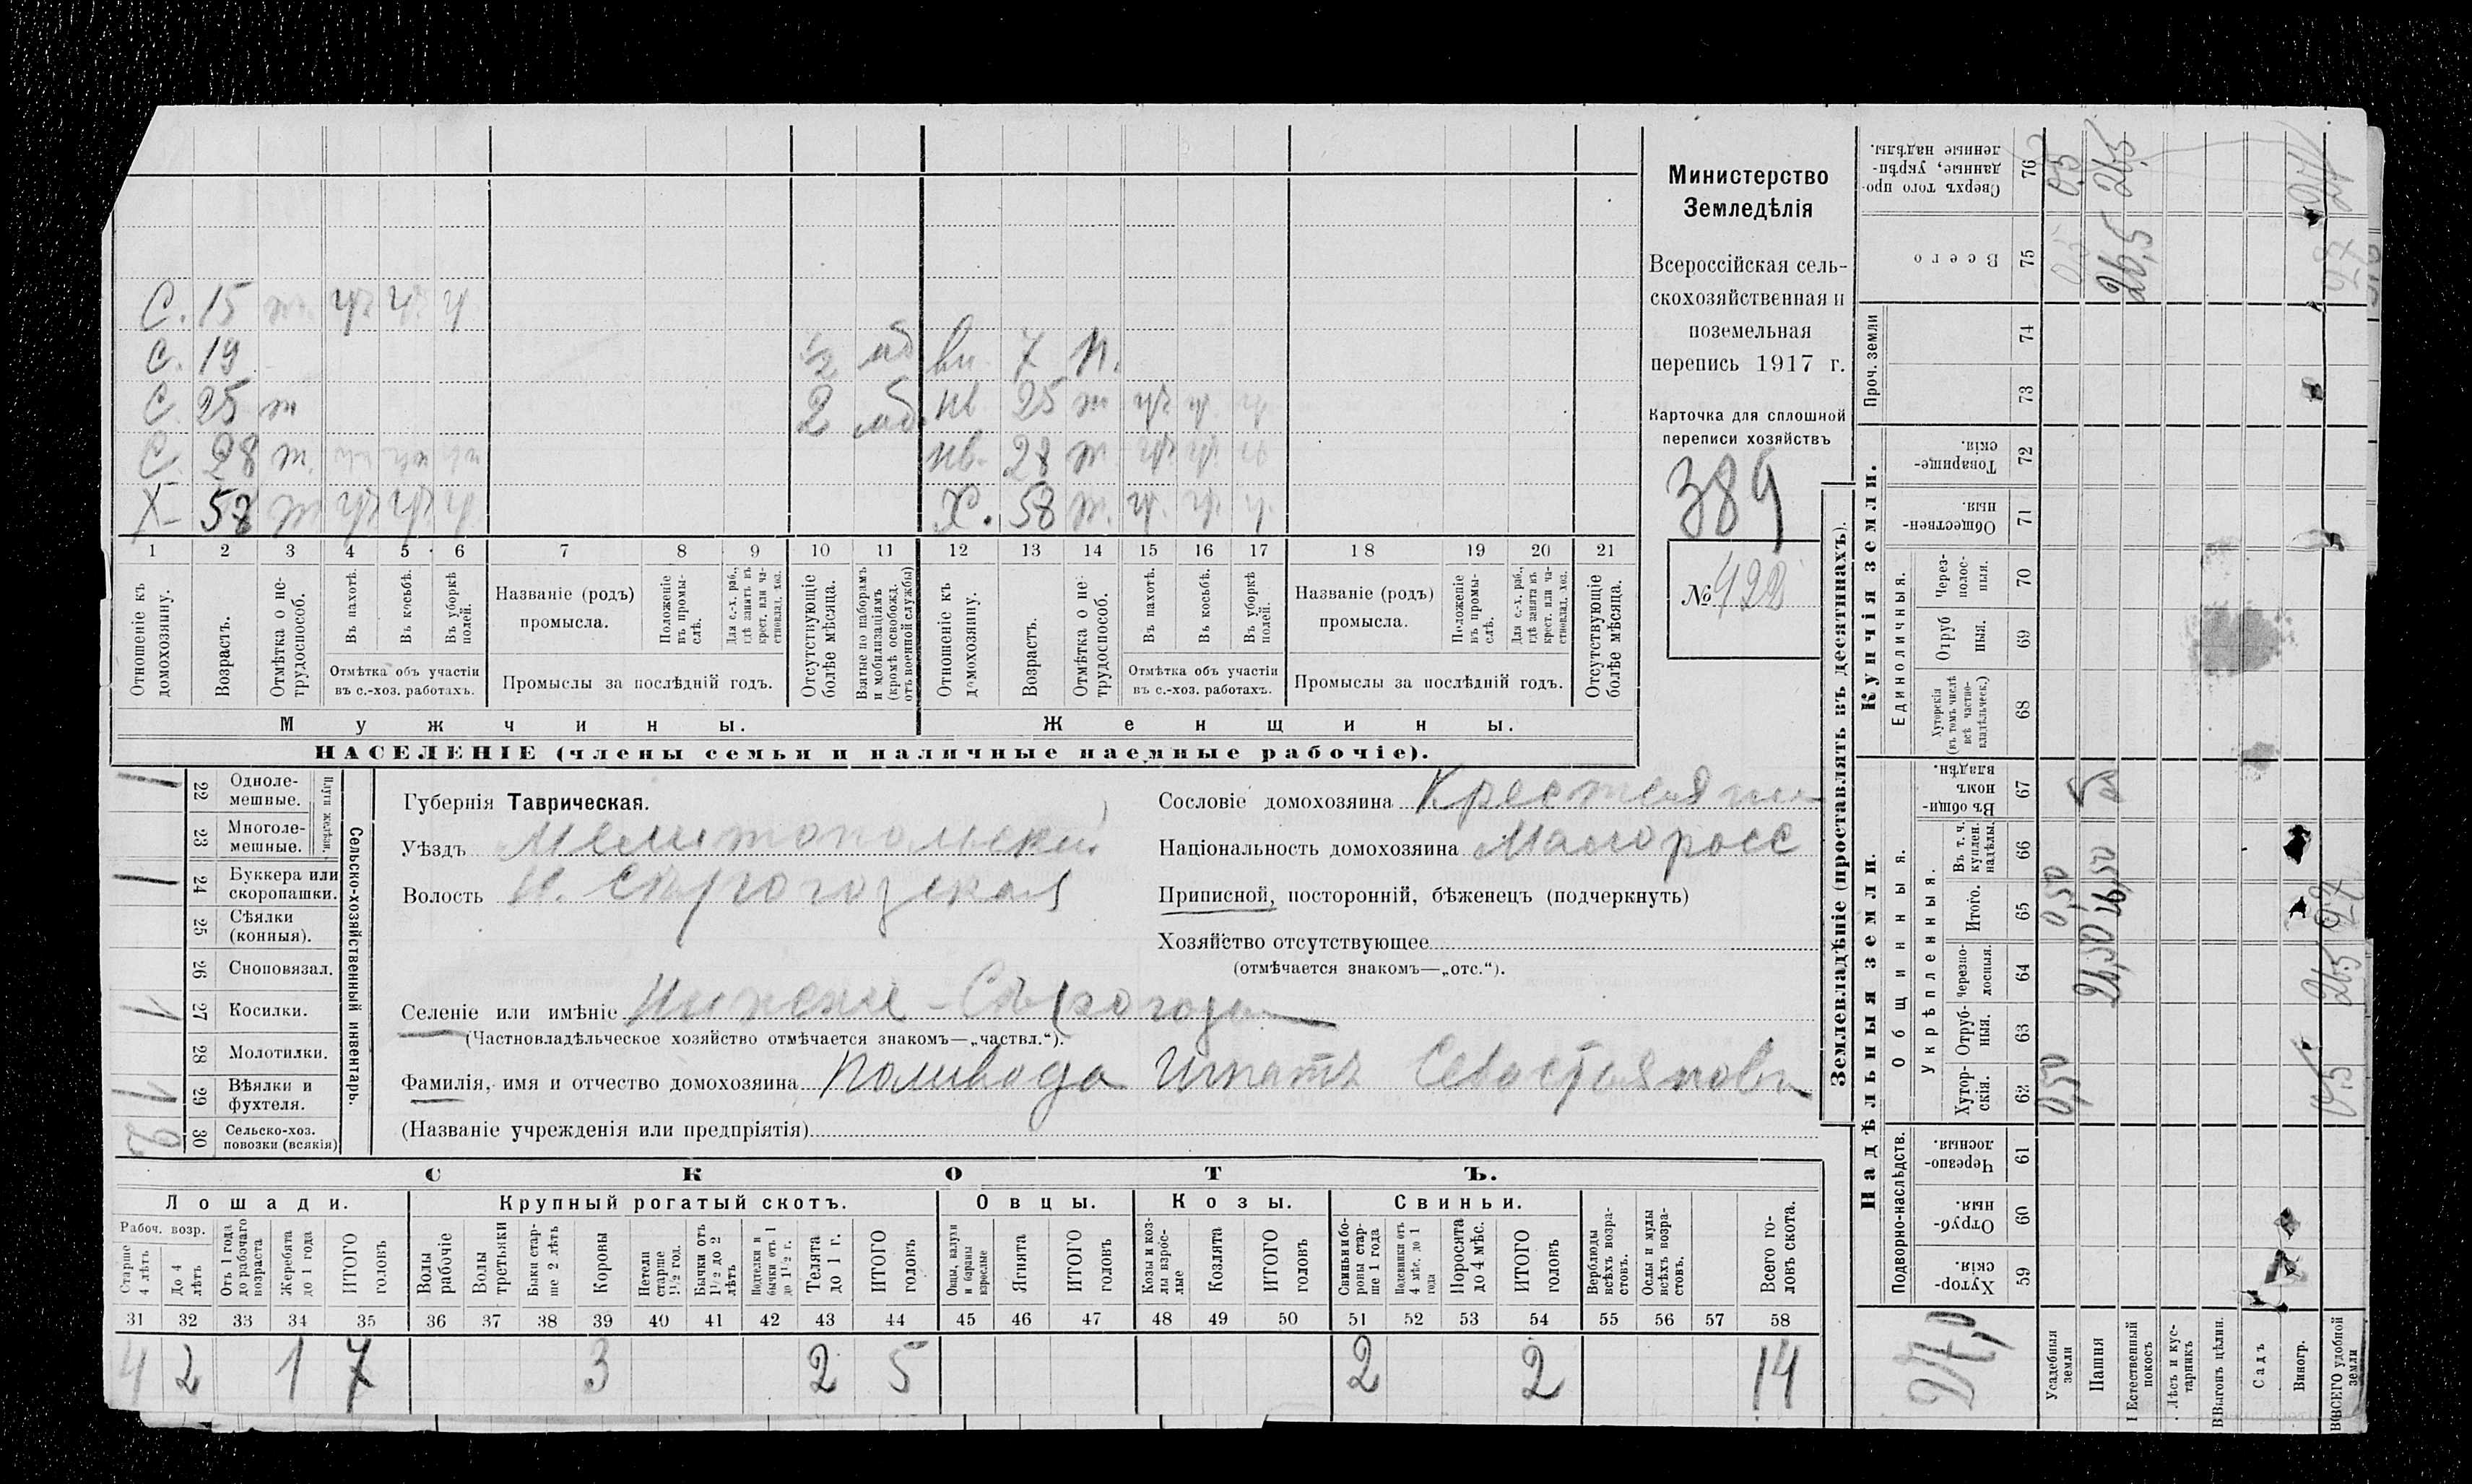 С. 15 т. ч. ч. ч.
С. 19 мб вн. 7 п.
С. 25 т 2 мб нв 25 т ч. ч. ч.
С. 28 т. нв. 28 т ч. ч. ч.
Х 58 т ч. ч. ч. Х. 58 т. ч. ч. ч.
1 2 3 4 5 6 7 8 9 10 11 12 13 14 15 16 17 18 19 20 21
Отношеніе къ домохозяину.
Возрастъ.
Отмѣтка о нетрудоспособ.
Въ пахотѣ.
Въ косьбѣ.
Въ уборкѣ полей.
Отмѣтка объ участіи
въ с.-хоз. работахъ.
Названіе (родъ)
промысла.
Положеніе въ промыслѣ.
Для с.-х. раб., гдѣ занятъ въ крест. или частновлад. хоз.
Промыслы за послѣдній годъ.
Отсутствующіе болѣе мѣсяца.
Взятые по наборамъ и мобилизаціямъ (кромѣ освобожд. отъ военной службы)
Отношеніе къ домохозяину.
Возрастъ.
Отмѣтка о нетрудоспособ.
Въ пахотѣ.
Въ косьбѣ.
Въ уборкѣ полей.
Отмѣтка объ участіи
въ с.-хоз. работахъ.
Названіе (родъ)
промысла.
Положеніе въ промыслѣ.
Для с.-х. раб., гдѣ занята въ крест. или частновлад. хоз.
Промыслы за послѣдній годъ.
Отсутствующіе болѣе мѣсяца.
Мужчины. Женщины.
НАСЕЛЕНІЕ (члены семьи и наличные наемные рабочіе).
Министерство
Земледѣлія
Всероссійская сель-
скохозяйственная и
поземельная
перепись 1917 г.
Карточка для сплошной
переписи хозяйствъ
389
№ 422
22 Одноле-
мешные. 1
23 Многоле-
мешные.
Плуги желѣзн.
24 Буккера или
скоропашки. 1
25 Сѣялки
(конныя).
26 Сноповязал.
27 Косилки. 1
28 Молотилки.
29 Вѣялки и
фухтеля. 1
30 Сельско-хоз.
повозки (всякія) 2
Сельско-хозяйственный инвентарь.
Губернія Таврическая.
Уѣздъ Мелитопольскій
Волость Н. Сѣрогозская
Сословіе домохозяина Крестьянин
Національность домохозяина Малоросс
Приписной, посторонній, бѣженецъ (подчеркнуть)
Хозяйство отсутствующее
(отмѣчается знакомъ—„отс.“).
Селеніе или имѣніе Нижніе-Сѣрогозы
(Частновладѣльческое хозяйство отмѣчается знакомъ—„частвл.“).
Фамилія, имя и отчество домохозяина Поливода Игнатъ Севастьянови
(Названіе учрежденія или предпріятія)
СКОТЪ.
Лошади. Крупный рогатый скотъ. Овцы. Козы. Свиньи.
Рабоч. возр.
Старше 4 лѣтъ
До 4 лѣтъ
Отъ 1 года до рабочаго возраста
Жеребята до 1 года
ИТОГО головъ
Волы рабочіе
Волы третьяки
Быки старше 2 лѣтъ
Коровы
Нетели старше 1½ год.
Бычки отъ 1½ до 2 лѣтъ
Подтелки и бычки отъ 1 до 1½ г.
Телята до 1 г.
ИТОГО головъ
Овцы, валухи и бараны взрослые
Ягнята
ИТОГО головъ
Козы и козлы взрослые
Козлята
ИТОГО головъ
Свиньи и боровы старше 1 года
Подсвинки отъ 4 мѣс. до 1 года
Поросята до 4 мѣс.
ИТОГО головъ
Верблюды всѣхъ возрастовъ.
Ослы и мулы всѣхъ возрастовъ.
Всего головъ скота.
31 32 33 34 35 36 37 38 39 40 41 42 43 44 45 46 47 48 49 50 51 52 53 54 55 56 57 58
4 2 1 7 3 2 5 2 2 14
Землевладѣніе (проставлять въ десятинахъ).
Надѣльныя земли. Купчія земли.
Проч. земли
Подворно-наслѣдств.
Общинныя.
Укрѣпленныя.
Единоличныя.
Хуторскія. 59
Отрубныя. 60
Черезполосныя. 61
Хуторскія. 62
Отрубныя. 63
Черезполосныя. 64
Итого. 65
Въ т. ч. куплен. надѣлы. 66
Въ общинномъ владѣн. 67
Хуторскія (въ томъ числѣ всѣ частновладѣльческ.) 68
Отрубныя. 69
Черезполосныя. 70
Общественныя. 71
Товарищескія. 72
73
74
Всего 75
Сверхъ того проданные, укрѣпленные надѣлы. 76
Усадебныя земли 0,50 0,50 0,5
Пашня 26,50 26,50 26,5 26,5
Естественный покосъ
Лѣсъ и кустарникъ
Выгонъ цѣлин.
Садъ
Виногр.
ВСЕГО удобной земли 0,5 26,5 27 27